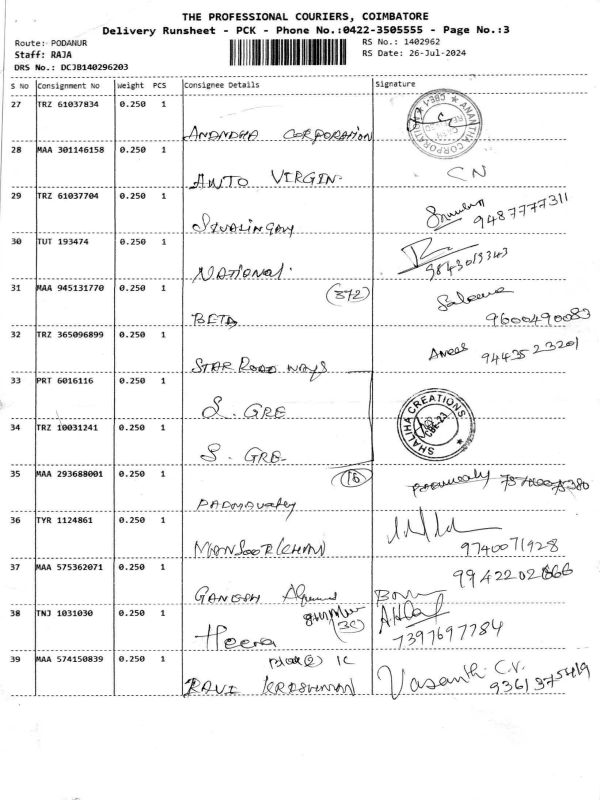 THE PROFESSIONAL COURIERS, COIMBATORE
Delivery Runsheet - PCK - Phone No.:0422-3505555 - Page No.:3
Route: PODANUR
RS No.: 1402962
Staff: RAJA
RS Date: 26-Jul-2024
DRS No.: DCJB140296203
S No Consignment No Weight PCS Consignee Details Signature
27 TRZ 61037834 0.250 1
ANANDHA CORPORATION
ANANTHA CORPORATION
28 MAA 301146158 0.250 1
ANTO VIRGIN. CN
29 TRZ 61037704 0.250 1
9487777311
30 TUT 193474 0.250 1
NATIONAL. 9843019343
31 MAA 945131770 0.250 1 (372) Saleena
BETA 9600490083
32 TRZ 365096899 0.250 1
STAR ROAD WAYS Anees 9443523201
33 PRT 6016116 0.250 1
S. GRE
SHALIHA CREATIONS
CBE-23
34 TRZ 10031241 0.250 1
S. GRE
35 MAA 293688001 0.250 1 (16)
PADMAVATHY
36 TYR 1124861 0.250 1
MANSOOR KHAN 9740071928
37 MAA 575362071 0.250 1
GANESH
38 TNJ 1031030 0.250 1 (3C)
Heera 7397697784
39 MAA 574150839 0.250 1 1C
RAVI KRISHNAN Vasanth. C.V.